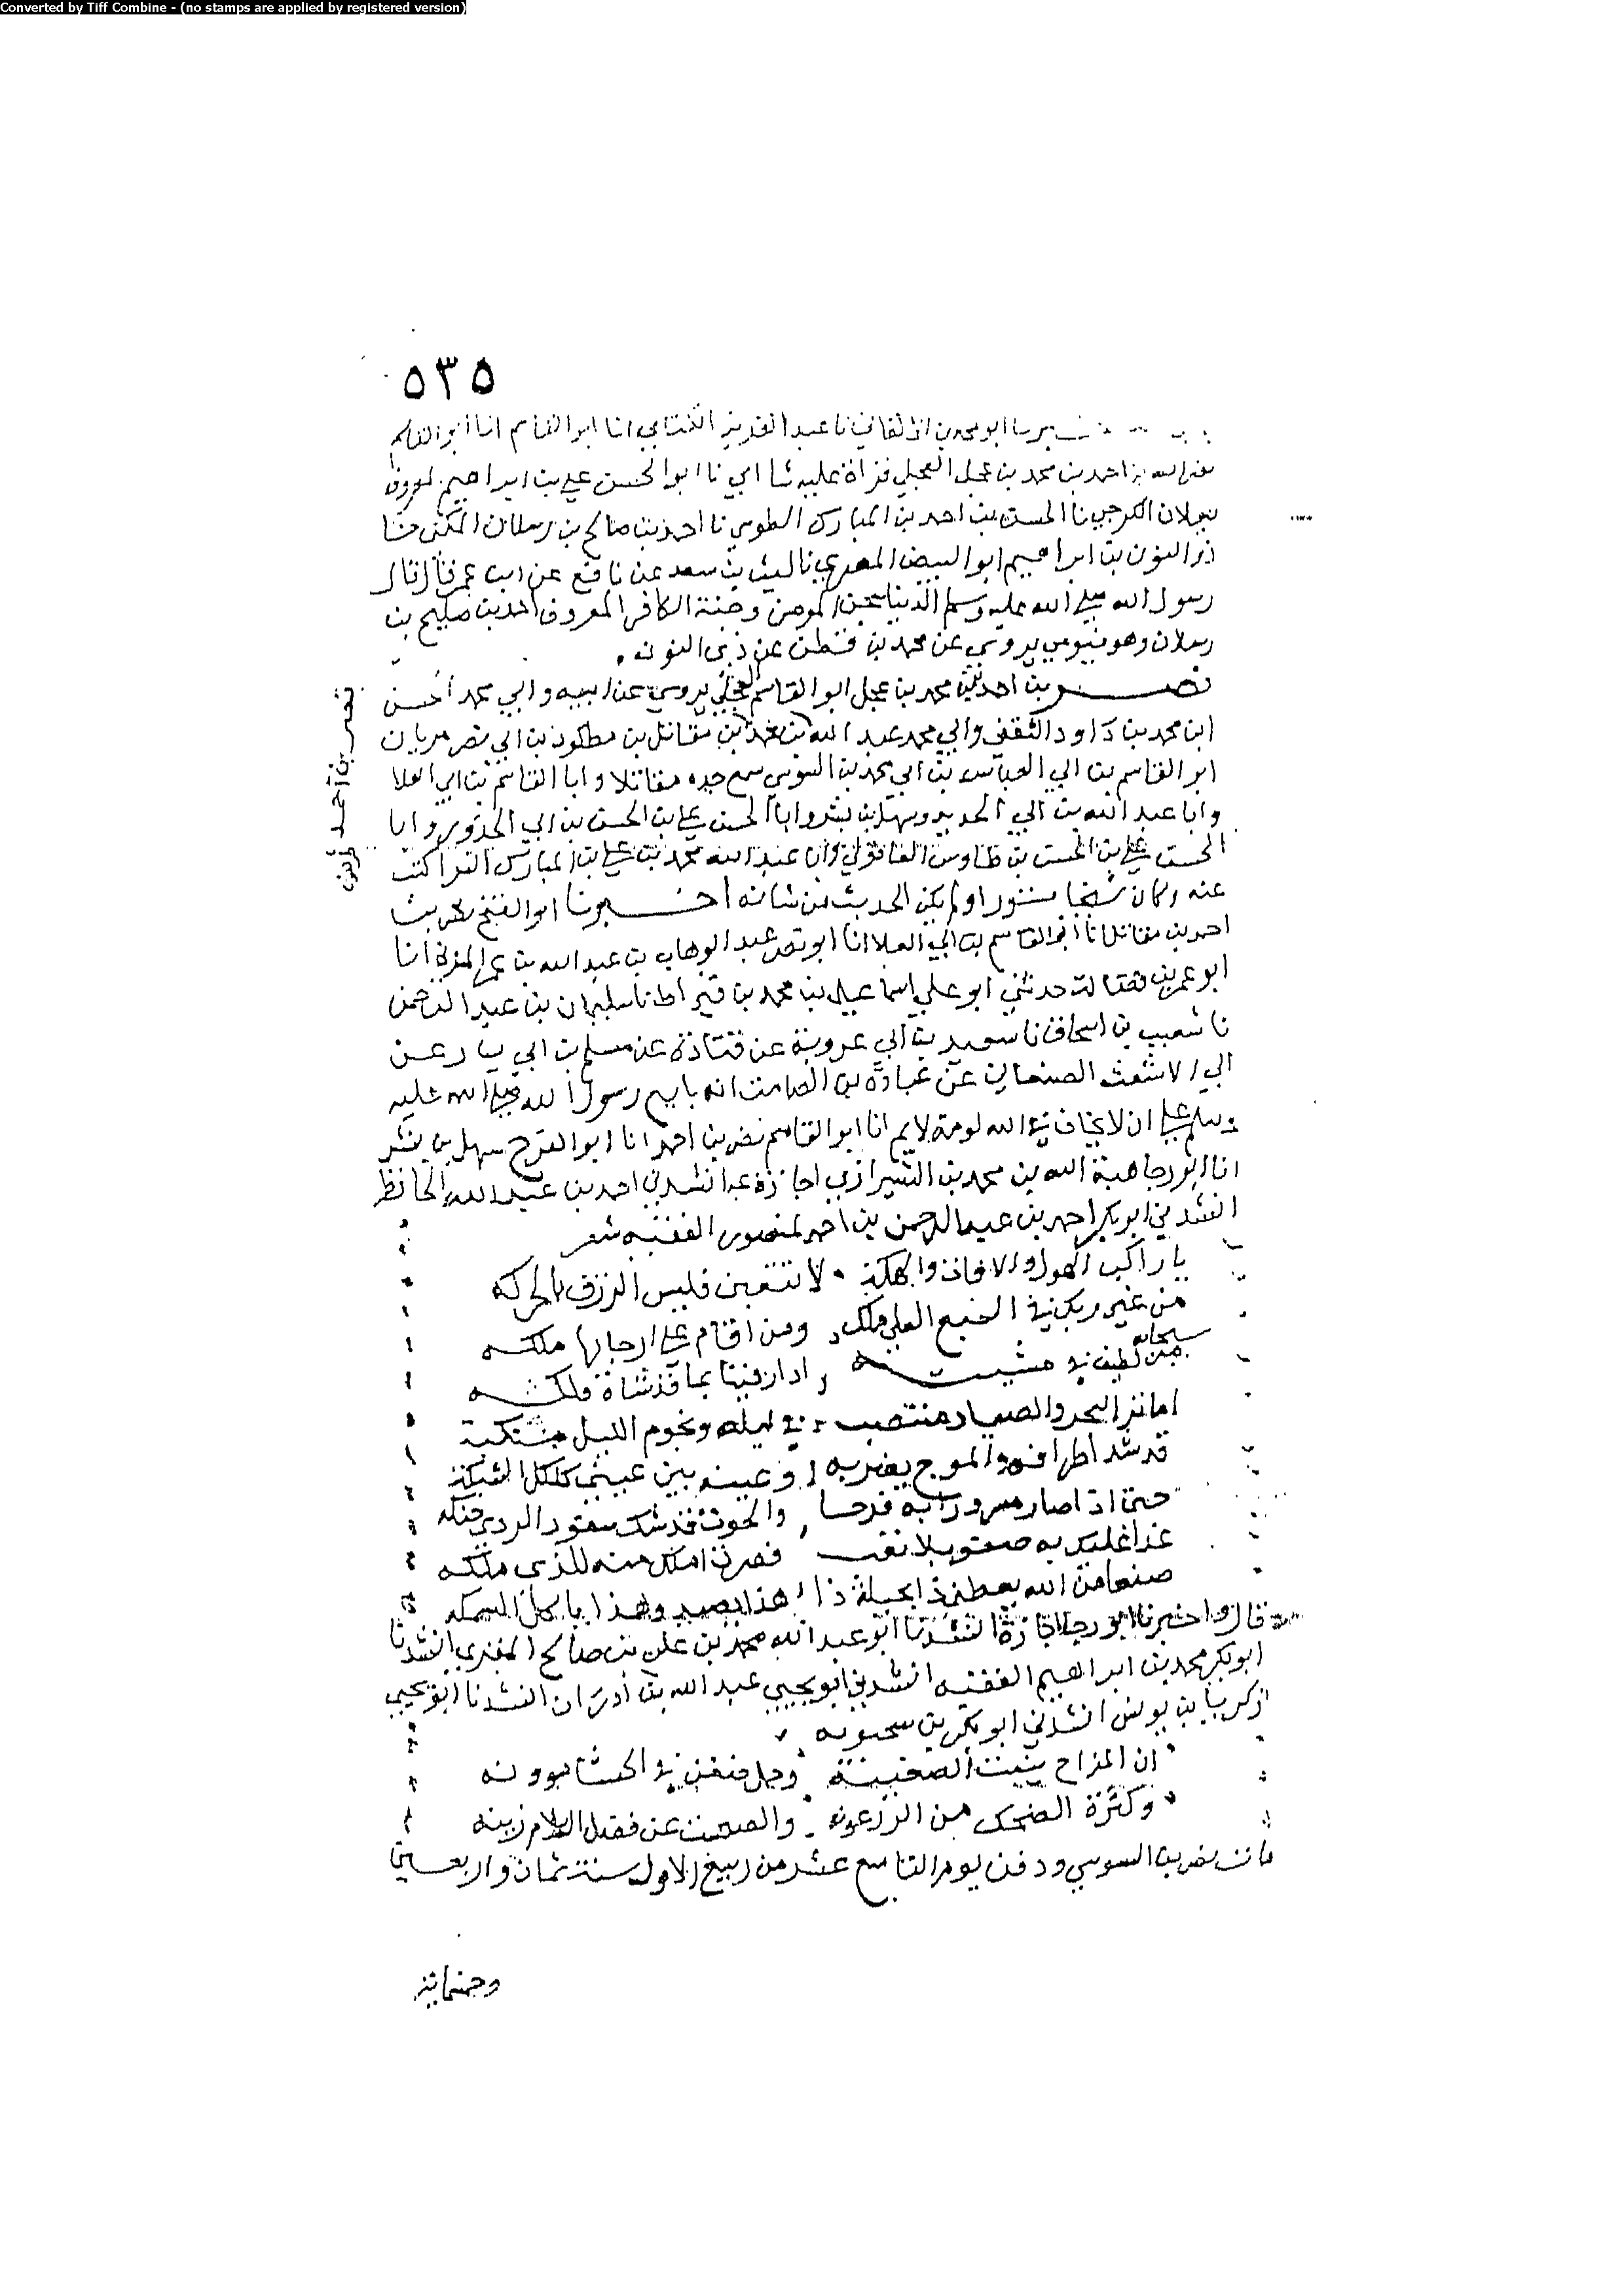 Converted by Tiff Combine - (no stamps are applied by registered version)
٥٣٥
ابو محمد بن الاكفاني نا عبد العزيز الكتاني انا ابو القاسم انا ابو القاسم
نصر الله بن احمد بن محمد بن عجل العجلي قراة عليه نا ابي نا ابو الحسن علي بن ابراهيم المعروف
بعلان الكرجي نا الحسن بن احمد بن المبارك الطوسي نا احمد بن صالح بن رسلان المكي حدثنا
ذو النون بن ابراهيم ابو الفيض المصري نا ليث بن سعد عن نافع عن ابن عمر قال قال
رسول الله صلى الله عليه وسلم الدنيا سجن المومن وجنة الكافر المعروف احمد بن صليح بن
رسلان وهو فيومي يروي عن محمد بن قطن عن ذي النون .
نصر بن احمد بن محمد بن عجل ابو القاسم العجلي يروي عن ابيه وابي محمد الحسن
ابن محمد بن داود الثقفي وابي محمد عبد الله بن محمد
نصر بن احمد بن مقاتل بن مطكود بن ابي نصر مريان
ابو القاسم بن ابي العباس بن ابي محمد بن السوسي سمع جده مقاتلا وابا القاسم بن ابي العلا
وابا عبد الله بن ابي الحديد وسهل بن بشر وابا الحسن علي بن الحسن بن ابي الحزور وابا
الحسن علي بن الحسن بن طاوس العاقولي وابا عبد الله محمد بن علي بن المبارك الفرا كتبت
عنه وكان شيخا مستورا ولم يكن الحديث من شانه اخبرنا ابو الفتح نصر بن
احمد بن مقاتل انا ابو القاسم بن ابي العلا انا ابو نصر عبد الوهاب بن عبد الله بن عمر المزني انا
ابو عمر بن فضالة حدثني ابو علي اسماعيل بن محمد بن قيراط نا سليمان بن عبد الرحمن
نا شعيب بن اسحاق نا سعيد بن ابي عروبة عن قتادة عن مسلم بن ابي يسار عن
ابي الاشعث الصنعاني عن عبادة بن الصامت انه بايع رسول الله صلى الله عليه
وسلم على ان لا يخاف في الله لومة لايم انا ابو القاسم نصر بن احمد انا ابو الفرج سهل بن بشر
انا ابو رجا هبة الله بن محمد بن الشيرازي اجازة انشدني احمد بن عبد الله الحافظ
انشدني ابو بكر احمد بن عبد الرحمن بن احمد لمنصور الفقيه شعر
يا راكب الهول والافات والهلكة لا تتعبن فليس الرزق بالحركه
من غير ربك في السبع العلى ملك ومن اقام على ارجايها ملكه
سبحانه من لطيف في مشيته ادار فينا بما قد شاة فلكه
اما ترى البحر والصياد منتصب في ليله ونجوم الليل مشتبكة
قد شد اطرافه والموج يضربه وعينه بين عينيى كلكل الشبكة
حتى اذا صار مسرورا به فرحا والحوت قد شك سفود الردى حنكه
غدا عليك به صفوا بلا تعب فصرت املك منه للذي ملكه
صنعا من الله يعطي ذا بحيلة ذا هذا يصيد وهذا ياكل السمكه
قال واخبرنا ابو رجا اجازة انشدنا ابو عبد الله محمد بن علي بن صالح المقري انشدنا
ابو بكر محمد بن ابراهيم الفقيه انشدني ابو يحيى عبد الله بن انشدنا ابو يحيى
زكريا بن يونس انشدني ابو بكر بن سحنويه
ان المزاح ينبت الضغينة وحمل ضغن في الحشا
وكثرة الضحك من الرعونة والصمت عن فضل الكلام زينه
مات نصر بن السوسي ودفن يوم التاسع عشر من ربيع الاول سنة ثمان واربعين
وخمسماية
نصر بن احمد